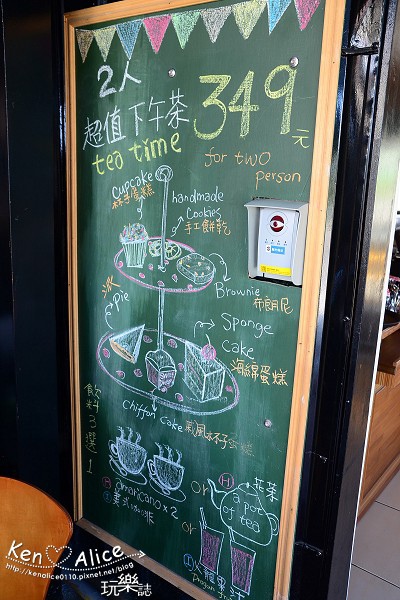 2人
超值下午茶
349元
tea time
for two
person
cupcake
杯子蛋糕
handmade
cookies
手工餅乾
Brownie
布朗尼
派
pie
Sponge
cake
海綿蛋糕
chiffon cake
戚風杯子蛋糕
飲料3選1
Ⓗ
americano×2
美式咖啡
or
Ⓗ
a pot
of tea
花茶
or
Ken ♡ Alice
http://kenalice0110.pixnet.net/blog
玩樂誌